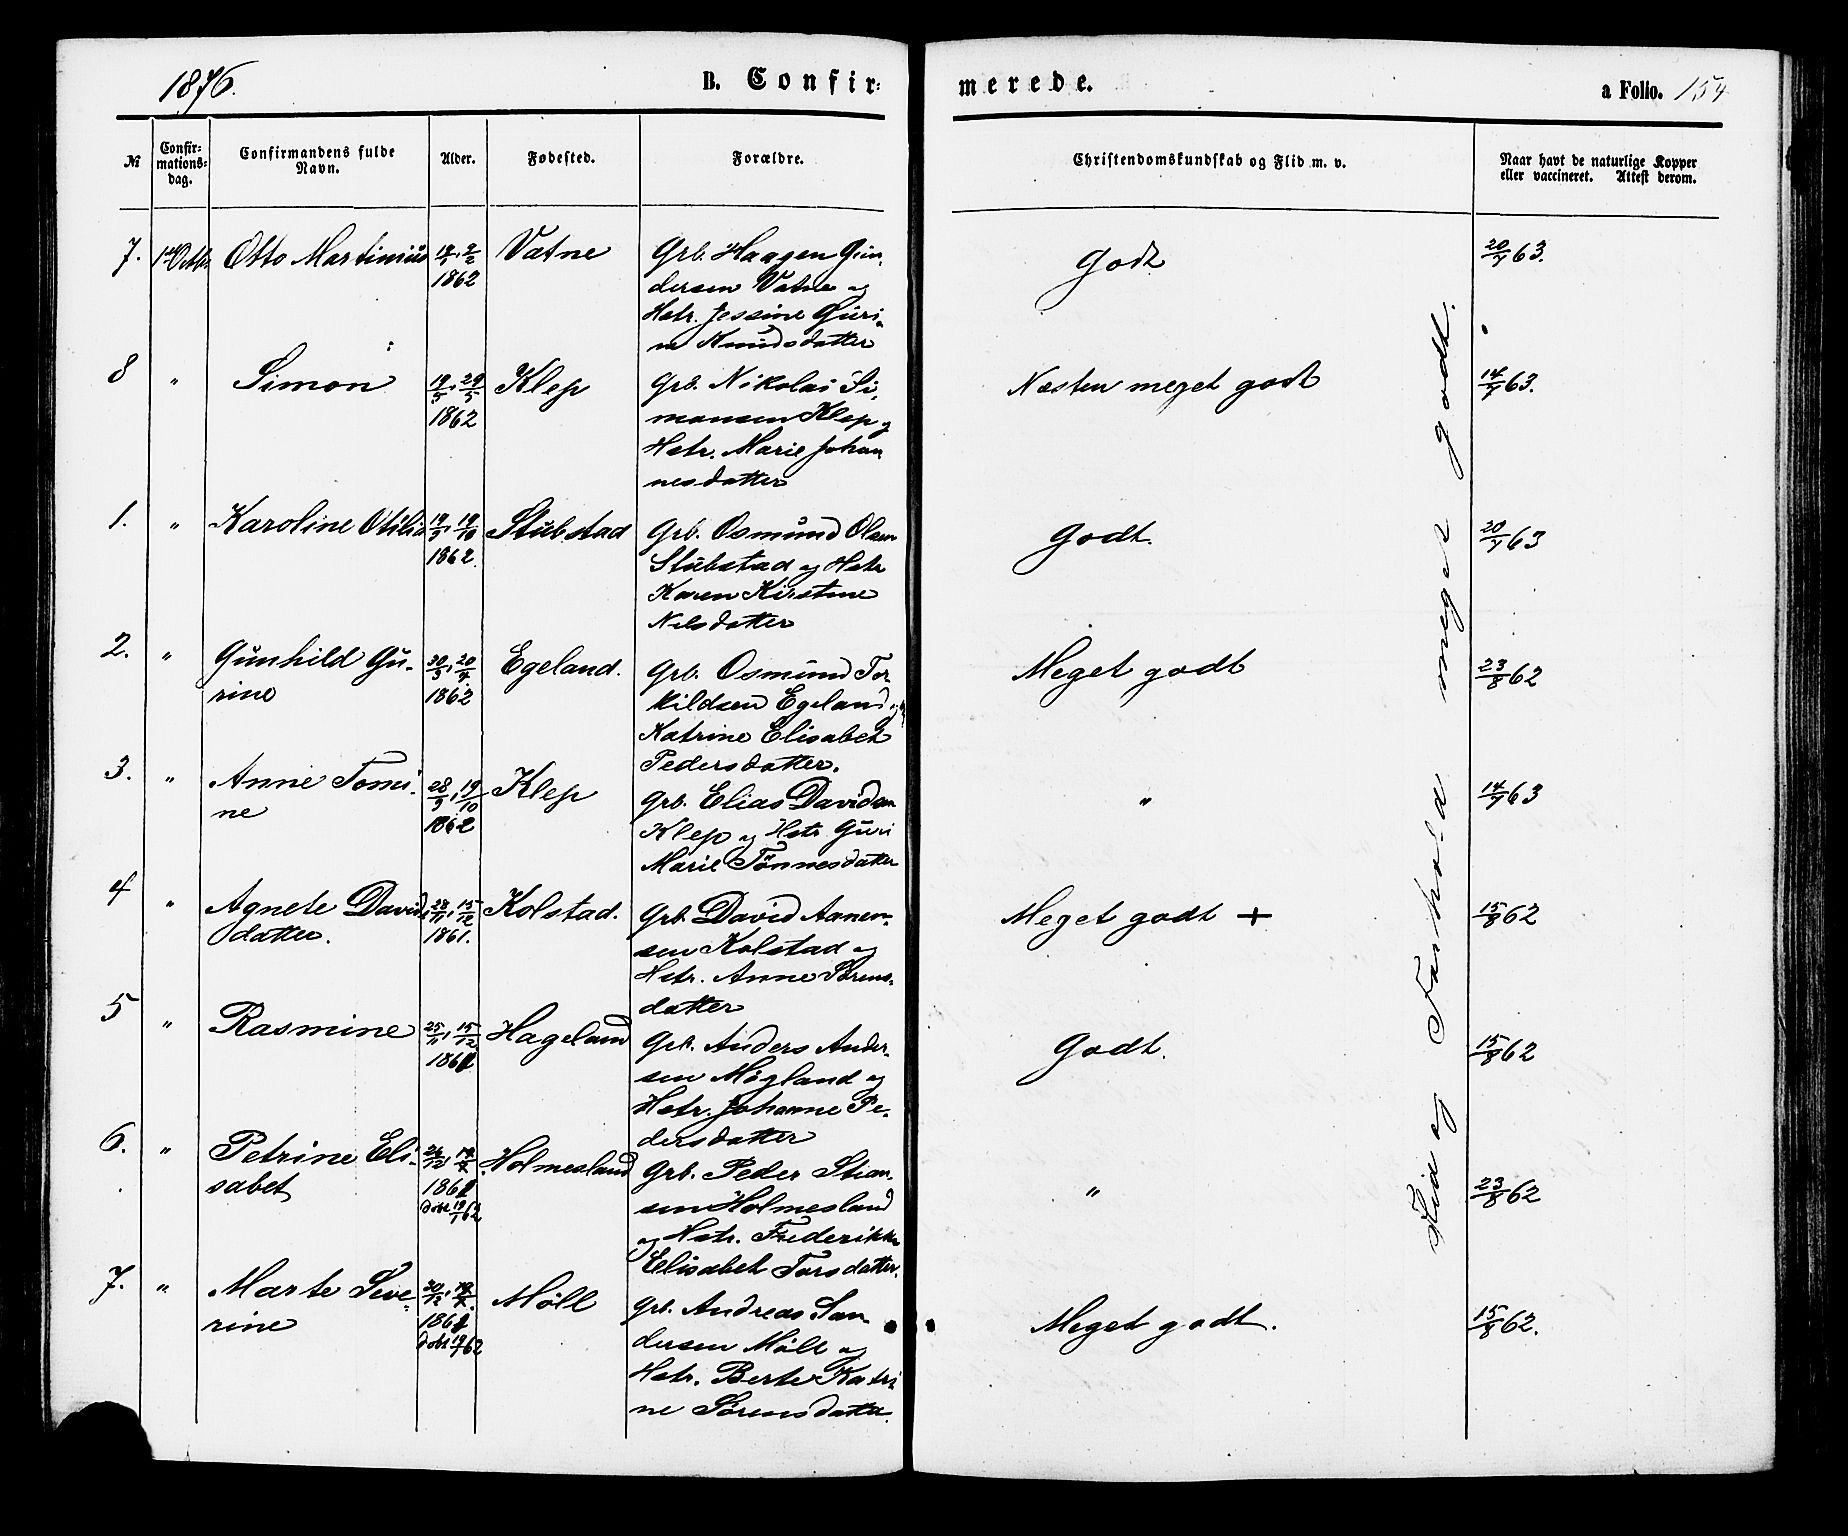 1876.
B. Confir-
merede.
a Folio. 154
№
Confir-
mations-
dag.
Confirmandens fulde
Navn.
Alder.
Fødested.
Forældre.
Christendomskundskab og Flid m. v.
Naar havt de naturlige Kopper
eller vaccineret. Attest derom.
7. 1ste Octbr Otto Martinius
1862
Vatne
Grb. Haagen Gun-
dersen Vatne og
Hstr. Jessine Guri-
ne Knudsdatter
Godt
20/7 63.
8 " Simon
19/5, 29/5
1862
Klep
Grb. Nikolai Si-
monsen Klep og
Hstr. Marie Johan
nesdatter
Næsten meget godt
14/7 63.
1. " Karoline Otilia
19/9, 19/10
1862.
Stubstad
Grb. Osmund Olsen
Stubstad og Hstr
Karen Kirstine
Nilsdatter
Godt.
20/7 63
2. " Gunhild Gu-
rine
30/3, 20/4
1862
Egeland.
Grb. Osmund Tor
kildsen Egeland og
Katrine Elisabet
Pedersdatter.
Meget godt
23/8 62
3. " Anne Tomi-
ne
28/9, 19/10
1862
Klep
Grb. Elias Davidsen
Klep og Hstr Guri
Marie Tønnesdatter
"
14/7 63
4 " Agnete Davids
datter.
28/11, 15/12
1861.
Kolstad.
Grb. David Aanen-
sen Kolstad og
Hstr. Anne Sørens-
datter
Meget godt +
15/8 62
5 " Rasmine
25/11, 15/12
1861
Hageland
Grb. Anders Ander-
sen Møgland og
Hstr. Johanne Pe-
dersdatter
Godt.
15/8 62
6. " Petrine Eli-
sabet
1861
døbt 19/1 62
Holmesland
Grb. Peder Stian-
sen Holmesland
og Hstr. Frederikke
Elisabet Torsdatter.
"
23/8 62
7. " Marte Seve-
rine
1861
døbt 19/1 62
Møll
Grb. Andreas San
dersen Møll og
Hstr. Berte Katri
ne Sørensdatter.
Meget godt.
15/8 62.
Flid og Forhold meget godt.